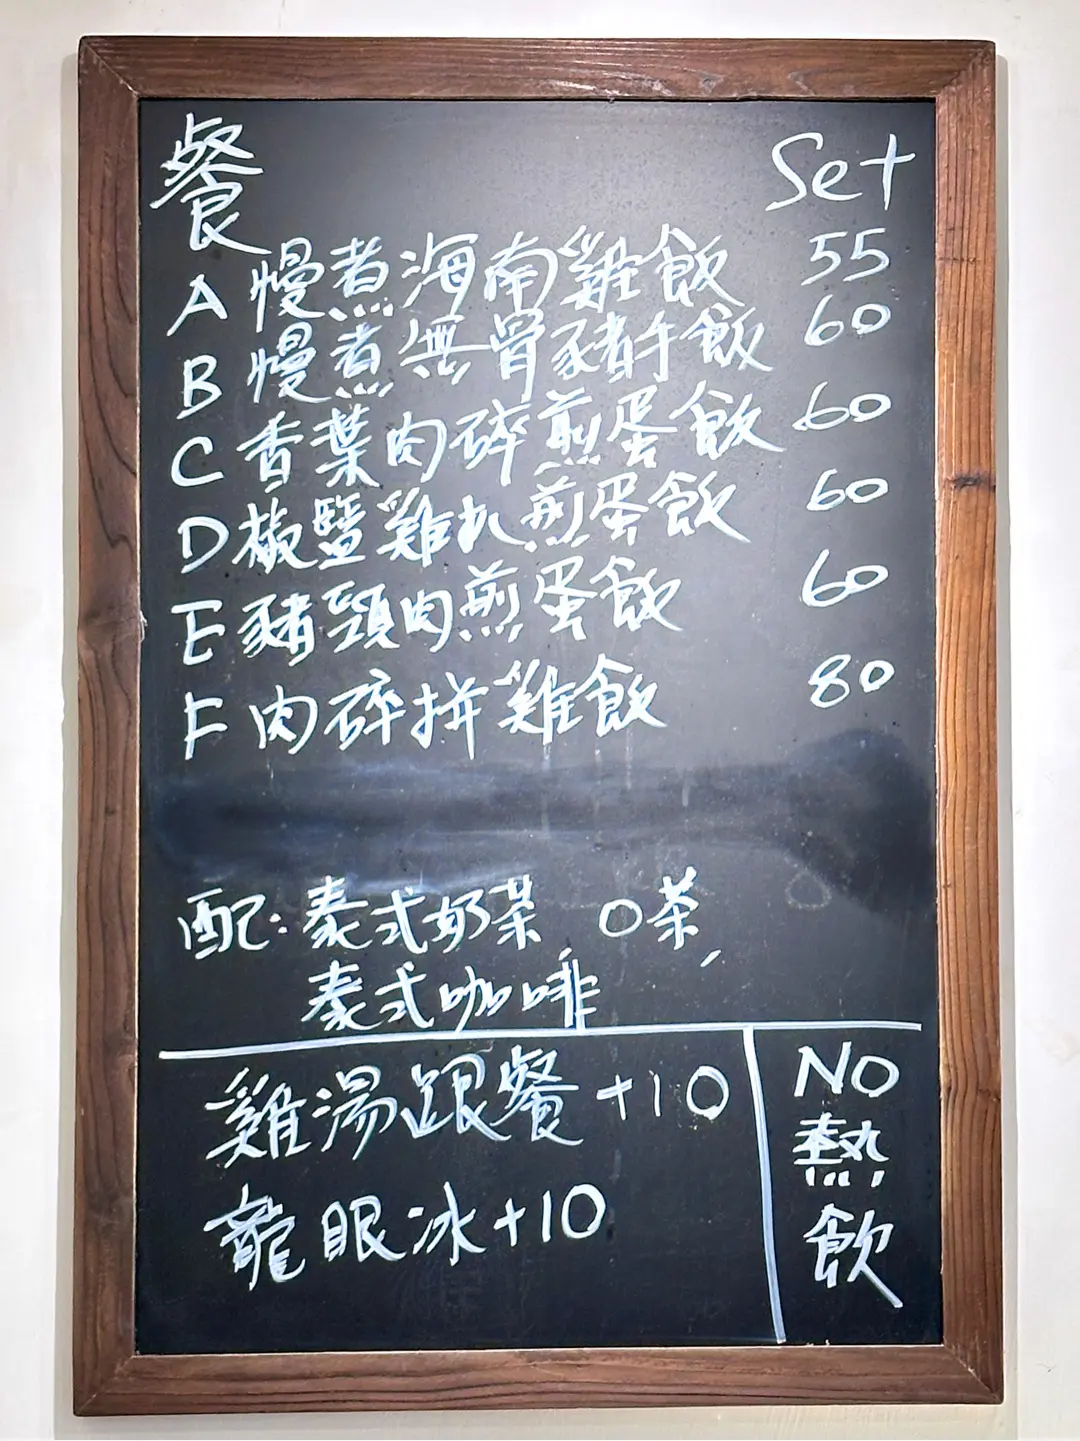 餐 Set
A 慢煮海南雞飯 55
B 慢煮無骨豬手飯 60
C 香葉肉碎煎蛋飯 60
D 椒鹽雞扒煎蛋飯 60
E 豬頸肉煎蛋飯 60
F 肉碎拼雞飯 80
配：泰式奶茶 O茶,
泰式咖啡
雞湯跟餐+10
龍眼冰+10
NO
熱
飲